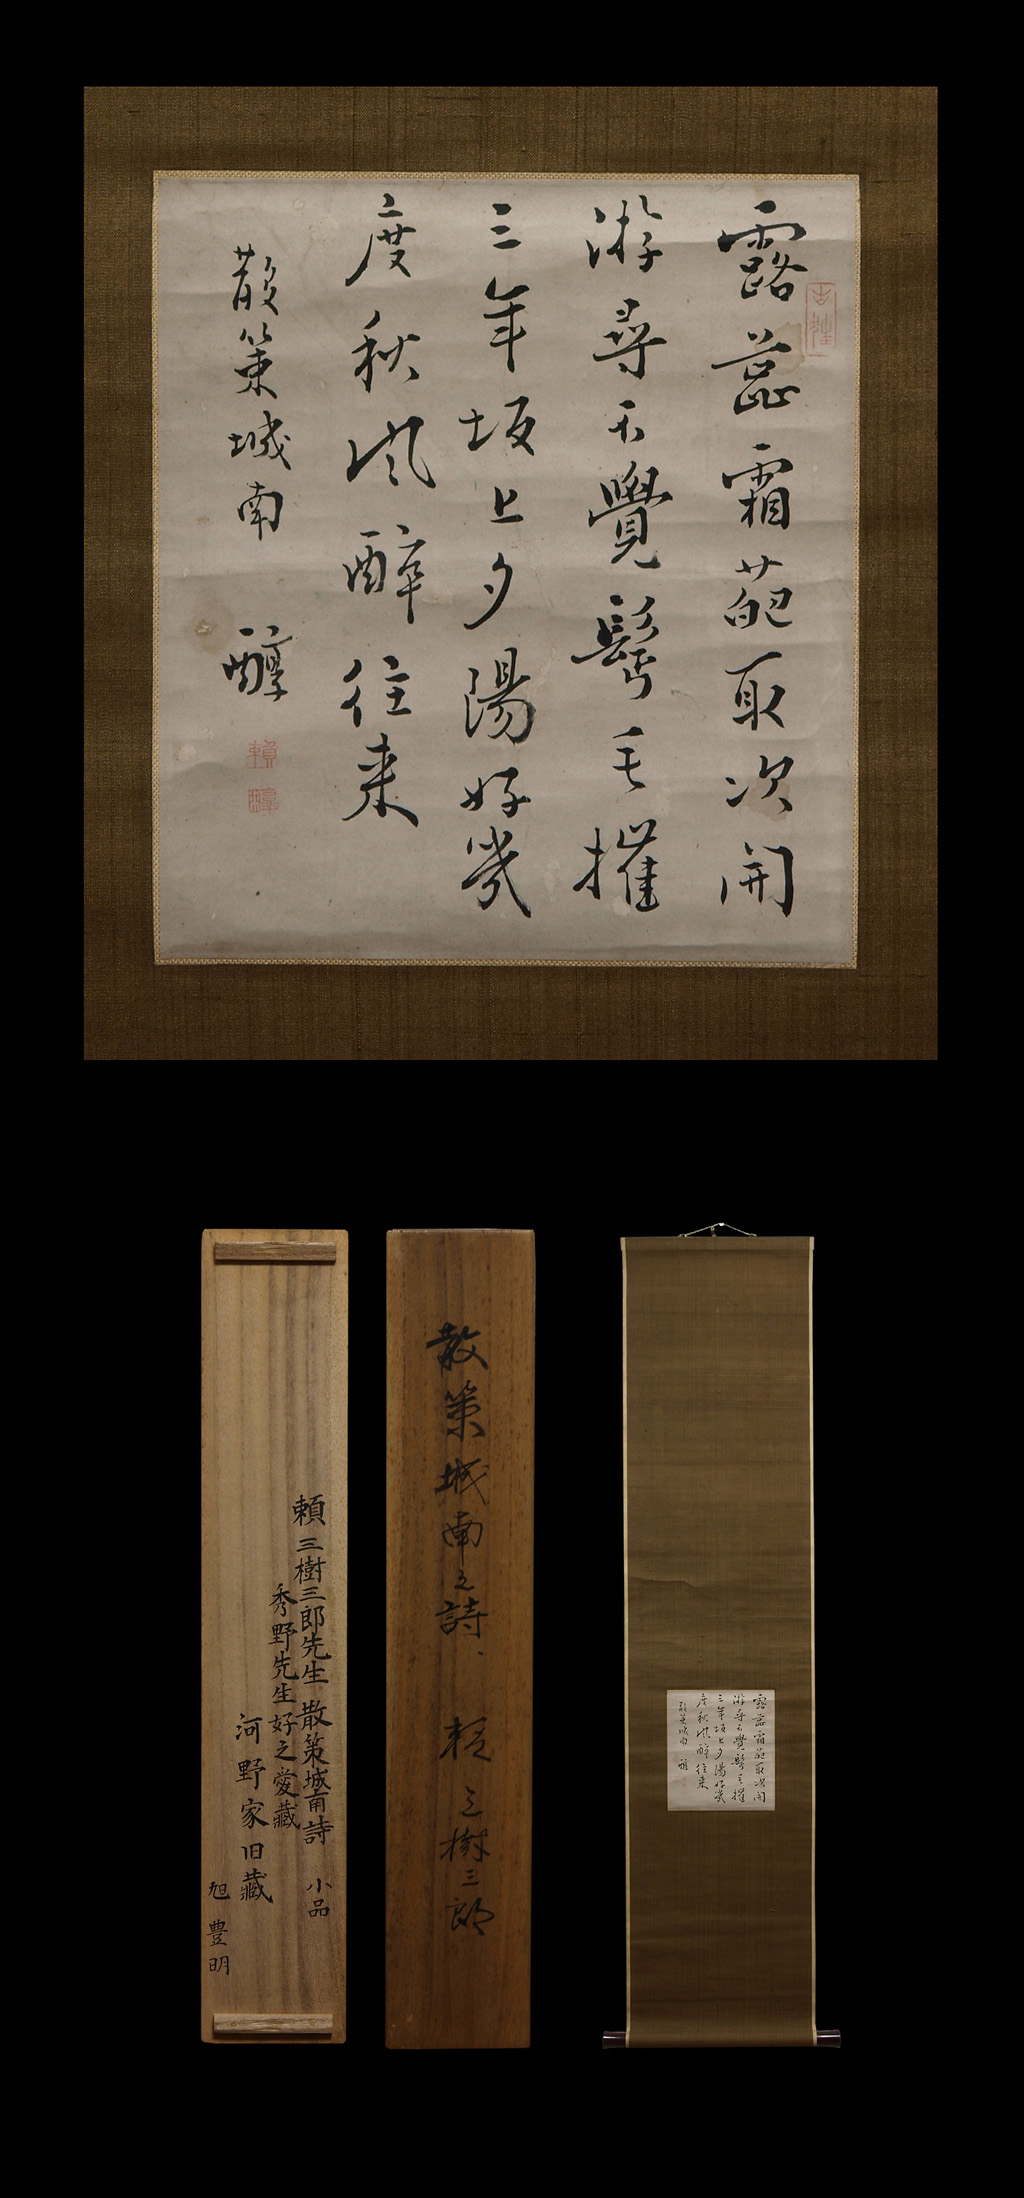 露蕊霜葩取次開
游尋不覺鬢毛摧
三年坂上夕陽好幾
度秋風醉往來
散策城南 醇
賴醇
賴三樹三郎先生 散策城南詩 小品
秀野先生好之愛藏
河野家旧藏
旭豊明
散策城南之詩、 頼三樹三郎
露蕊霜葩取次開
游尋不覺鬢毛摧
三年坂上夕陽好幾
度秋風醉往來
散策城南 醇